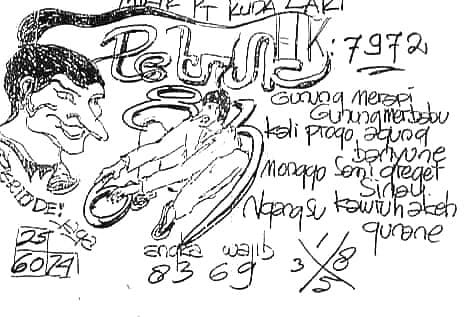 PT KUDA LARI
7972
Gunung Merapi
Gunung merbabu
kali progo agung
banyune
Monggo Sami greget
Sinau
Ngangsu kawruh akeh
gunane
25
60 74
angka wajib
8 3 6 9
1
3 8
5